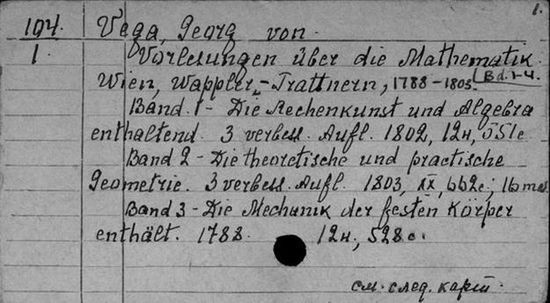 1.
104. Vega, Georg von
1 Vorlesungen über die Mathematik
Wien, Wappler, - Trattnern, 1788-1805. Bd. 1-4.
Band 1 - Die Rechenkunst und Algebra
enthaltend. 3 verbess. Aufl. 1802, 12н, 551с
Band 2 - Die theoretische und practische
Geometrie. 3 verbess. Aufl. 1803, xx, 662с; 16
Band 3 - Die Mechanik der festen Körper
enthält. 1788. 12н., 528с.
см. след. карт